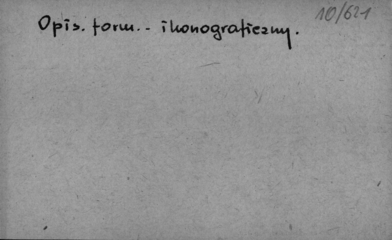 10/621
Opis. form.- ikonograficzny.